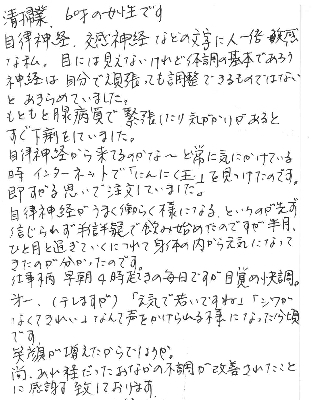 清掃業、60才の女性です
自律神経、交感神経などの文字に人一倍敏感
な私。目には見えないけれど体調の基本であろう
神経は自分で頑張っても調整できるものではない
とあきらめていました。
もともと胃腸病質で緊張したり気がかりがあると
すぐ下痢をしていました。
自律神経から来てるのかな〜と常に気にかけている
時インターネットで「にんにく玉」を見つけたのです。
即すがる思いで注文していました。
自律神経がうまく働らく様になる、というのが先ず
信じられず半信半疑で飲み始めたのですが半月、
ひと月と過ぎていくにつれて身体の内から元気になって
きたのが分かったのです。
仕事柄 早朝4時起きの毎日ですが目覚め快調。
オー、(テレますが)「元気で若いですね」「シワが
なくてきれい」なんて声をかけられる様になった今頃
です。
笑顔が増えたからでしょうか。
尚、あれ程だったおなかの不調が改善されたこと
に感謝致しております。